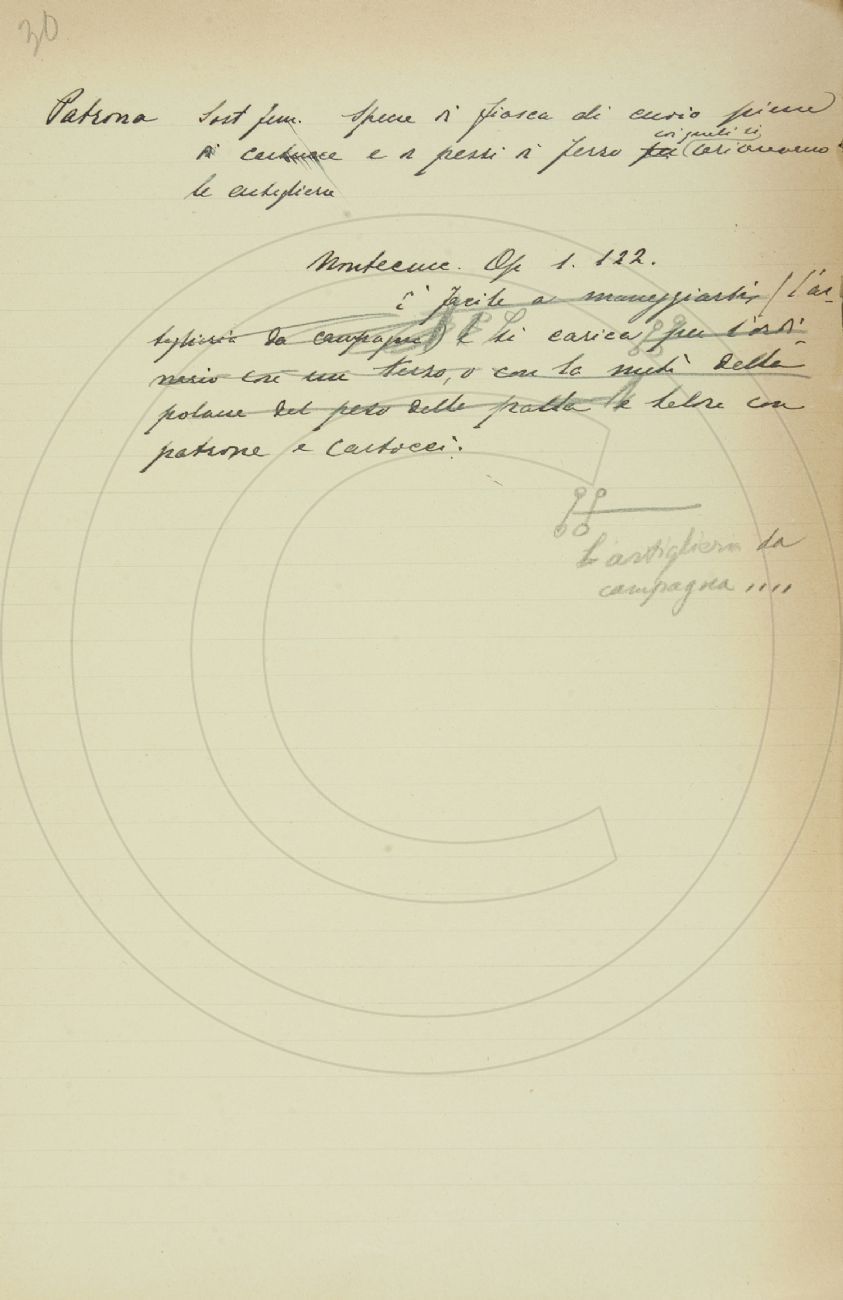 30
Patrona Sost fem. Specie di fiasca di cuoio piene
di cartucce e di pezzi di ferro per (coi quali si caricavano
le artiglierie
Montecuc. Op 1. 122.
È facile a maneggiarsi (l'ar-
tiglieria da campagna) e si carica per l'ordi-
nario con un terzo, o con la metà della
polvere del peso della palla e talora con
patrone e cartocci.
L'artiglieria da
campagna ,,,,